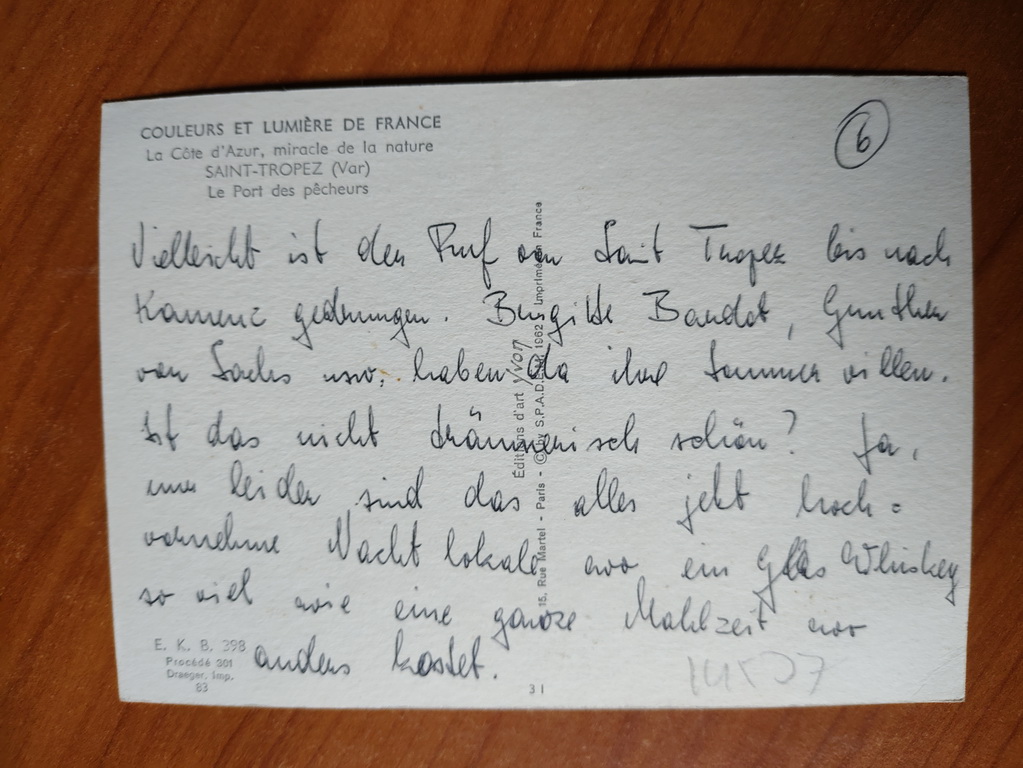 COULEURS ET LUMIÈRE DE FRANCE
La Côte d'Azur, miracle de la nature
SAINT-TROPEZ (Var)
Le Port des pêcheurs
6
Vielleicht ist der Ruf von Saint Tropez bis nach
Kamenz gedrungen. Brigitte Bardot, Gunther
von Sachs usw. haben da ihre Sommer villen.
Ist das nicht träumerisch schön? Ja,
nur leider sind das alles jetzt hoch=
vornehme Nachtlokale wo ein Glas Whiskey
so viel wie eine ganze Mahlzeit wo
anders kostet.
E. K. B. 398
Procédé 301
Draeger, Imp.
83
31
Éditions d'art Yvon
15, Rue Martel - Paris - © by S.P.A.D.E.M. 1962 - Imprimé en France